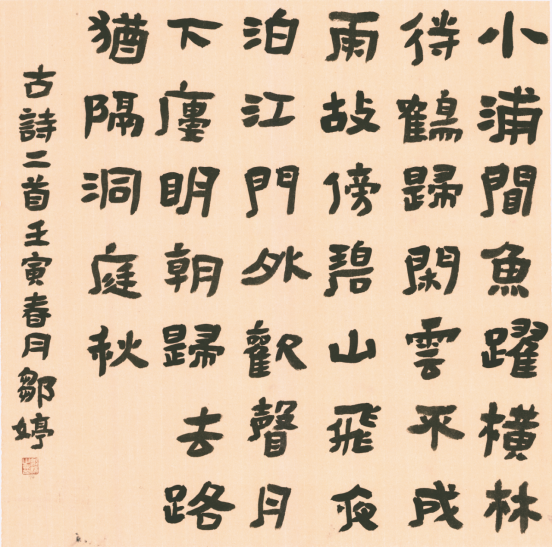 小浦聞魚躍橫林
待鶴歸閑雲不成
雨故傍碧山飛夜
泊江門外歡聲月
下廔明朝歸去路
猶隔洞庭秋
古詩二首壬寅春月鄒婷